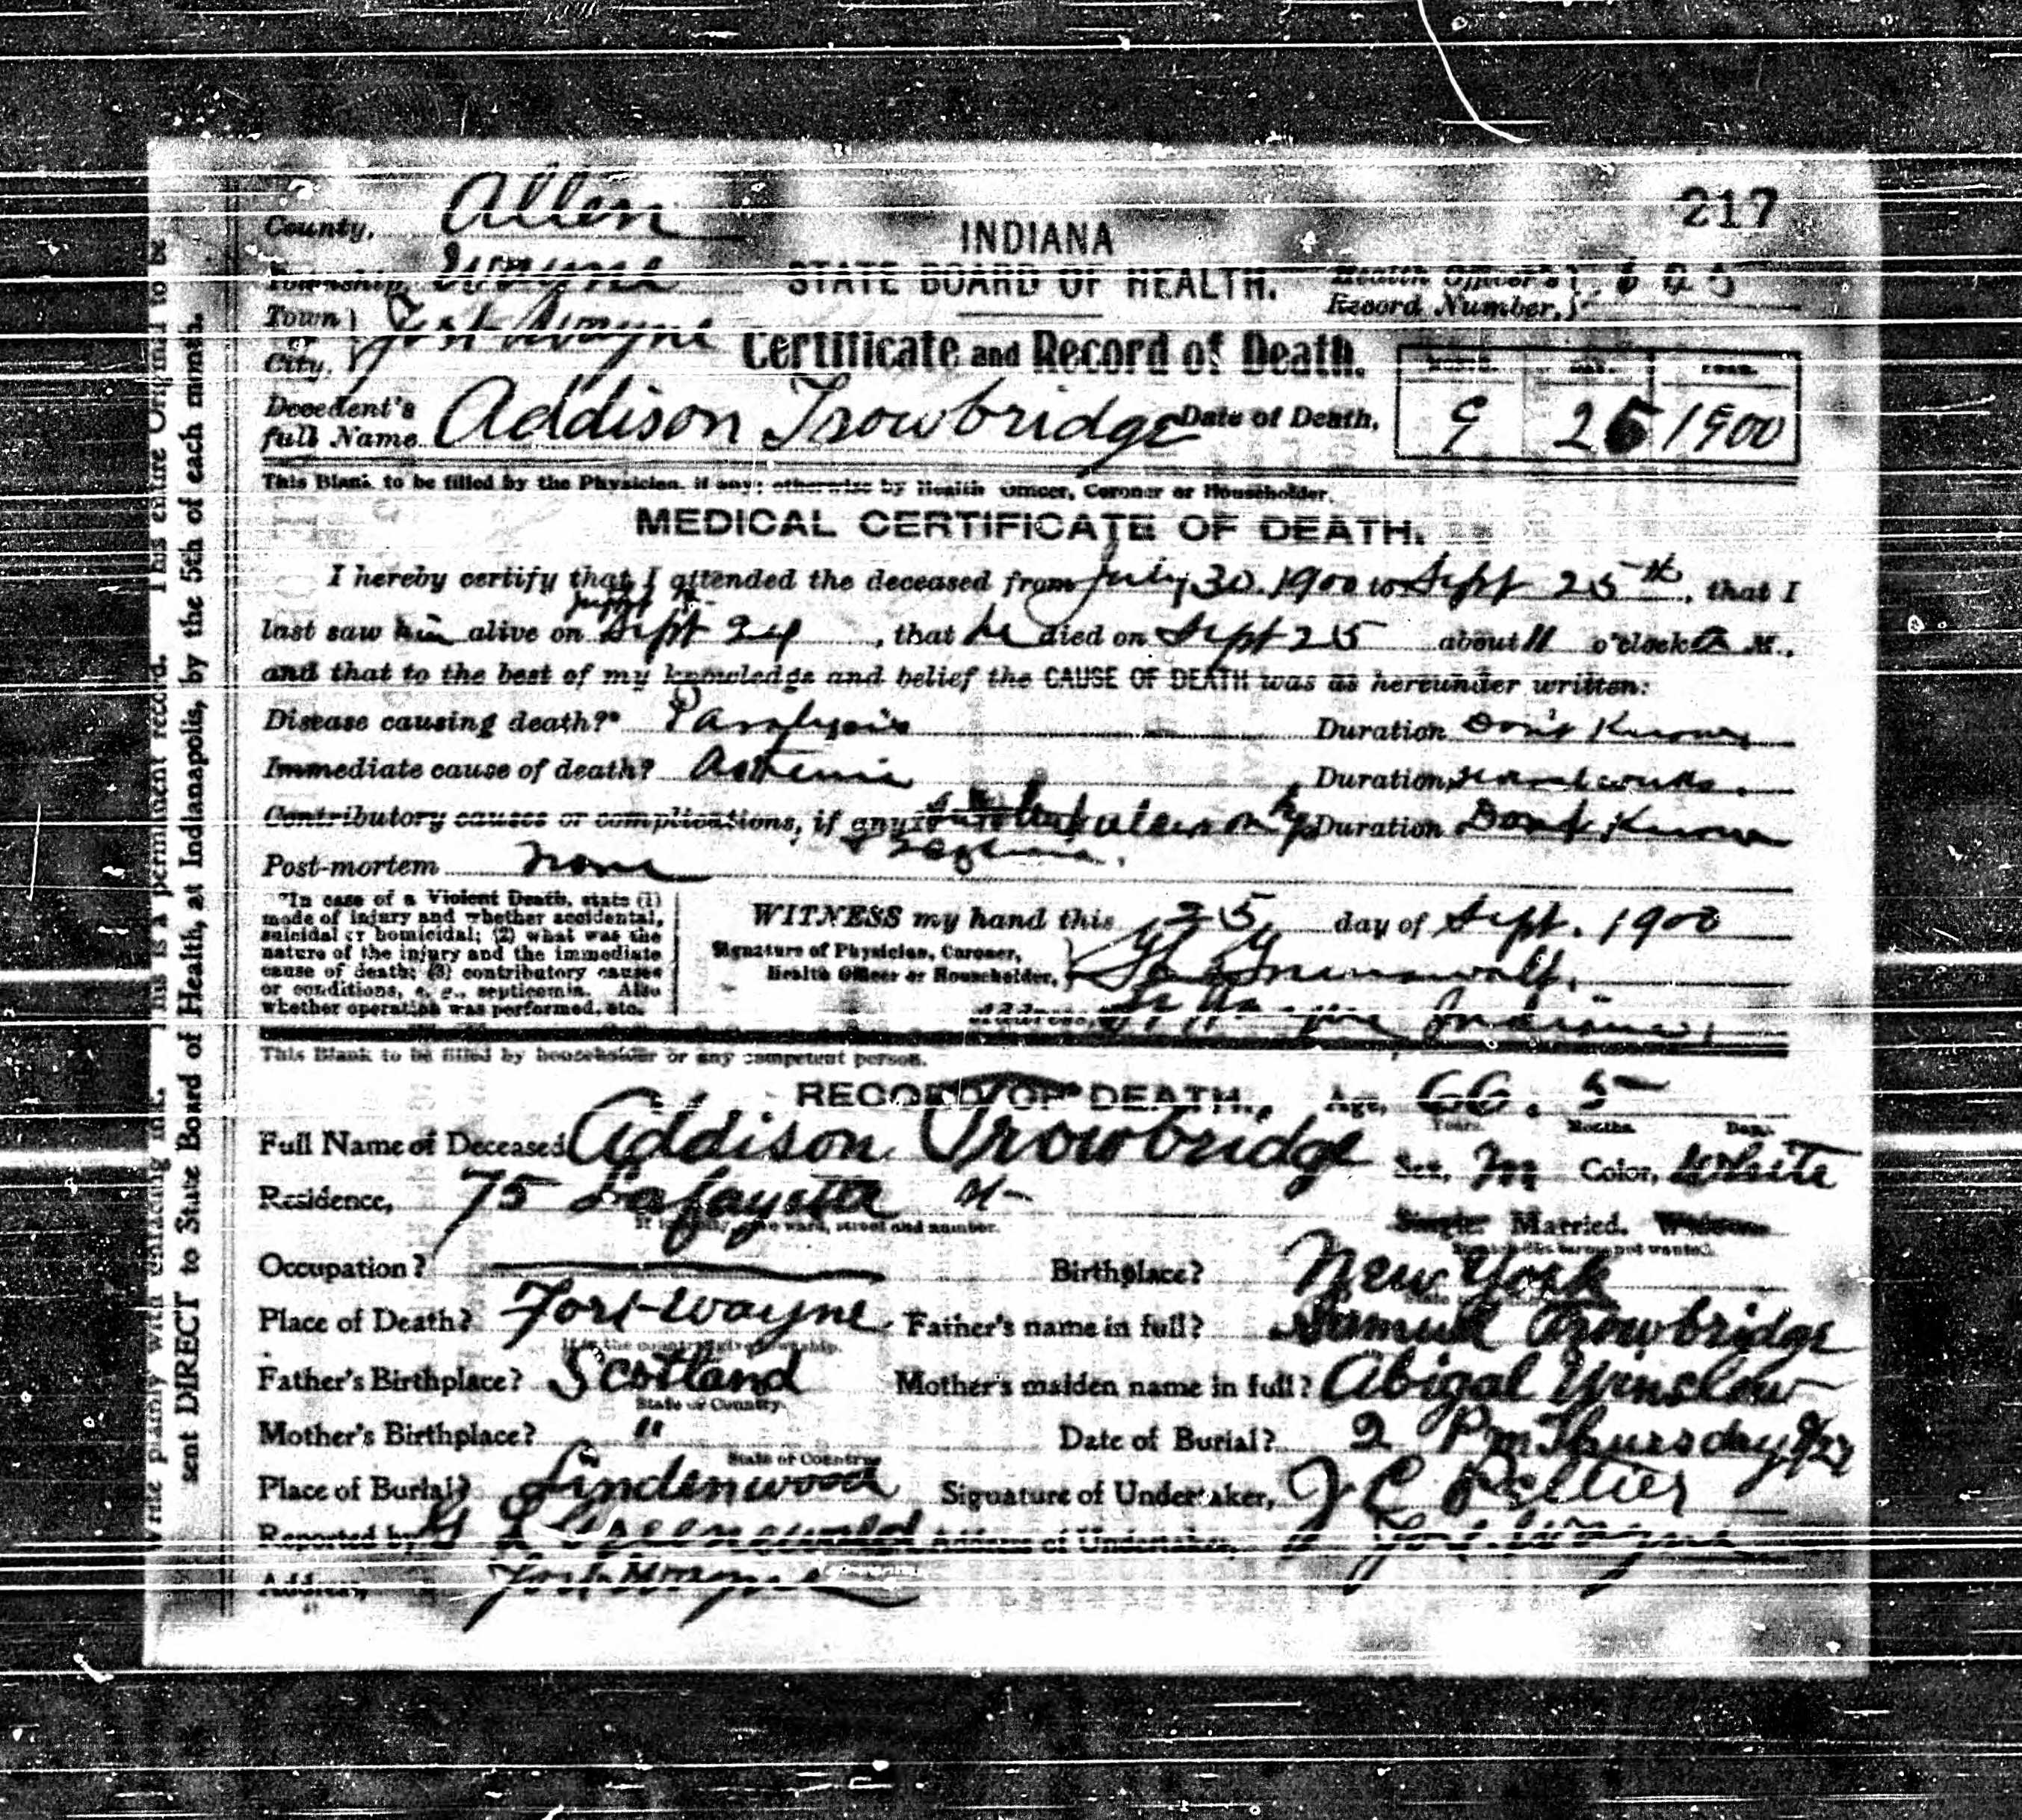 217
County, Allen
INDIANA
Township, Wayne
STATE BOARD OF HEALTH.
Health Officer's
Record Number,
Town
or
City,
Fort Wayne
Certificate and Record of Death.
Decedent's
full Name Addison Trowbridge
Date of Death, 9 25 1900
This Blank to be filled by the Physician, if any; otherwise by Health Officer, Coroner or Householder.
MEDICAL CERTIFICATE OF DEATH.
I hereby certify that I attended the deceased from July 30. 1900 to Sept 25th, that I
last saw him alive on Sept 24, that he died on Sept 25 about 11 o'clock A M.,
and that to the best of my knowledge and belief the CAUSE OF DEATH was as hereunder written:
Disease causing death?* Paralysis Duration Don't Know
Immediate cause of death? Asthenia Duration, weeks.
Contributory causes or complications, if any Duration Don't Know
Post-mortem none
*In case of a Violent Death, state (1)
mode of injury and whether accidental,
suicidal or homicidal; (2) what was the
nature of the injury and the immediate
cause of death; (3) contributory causes
or conditions, e. g., septicemia. Also
whether operation was performed, etc.
WITNESS my hand this 25 day of Sept. 1900
Signature of Physician, Coroner,
Health Officer or Householder,
Address, Ft Wayne Indiana.
This Blank to be filled by householder or any competent person.
RECORD OF DEATH. Age, 66. 5
Years. Months. Days.
Full Name of Deceased Addison Trowbridge Sex, M Color, White
Residence, 75 Lafayette St
If in city, give ward, street and number.
Single Married. Widow
Scratch the terms not wanted.
Occupation? Birthplace? New York
Place of Death? Fort Wayne Father's name in full? Samuel Trowbridge
If in the country give township.
Father's Birthplace? Scotland Mother's maiden name in full? Abigal Winslow
State or Country.
Mother's Birthplace? " Date of Burial? 2 Pm Thursday 9/27
State or Country
Place of Burial? Lindenwood Signature of Undertaker, J C Peltier
Reported by Address of Undertaker, Fort Wayne
Address, Fort Wayne
Write plainly with unfading ink. This is a permanent record. This entire Original to be
sent DIRECT to State Board of Health, at Indianapolis, by the 5th of each month.